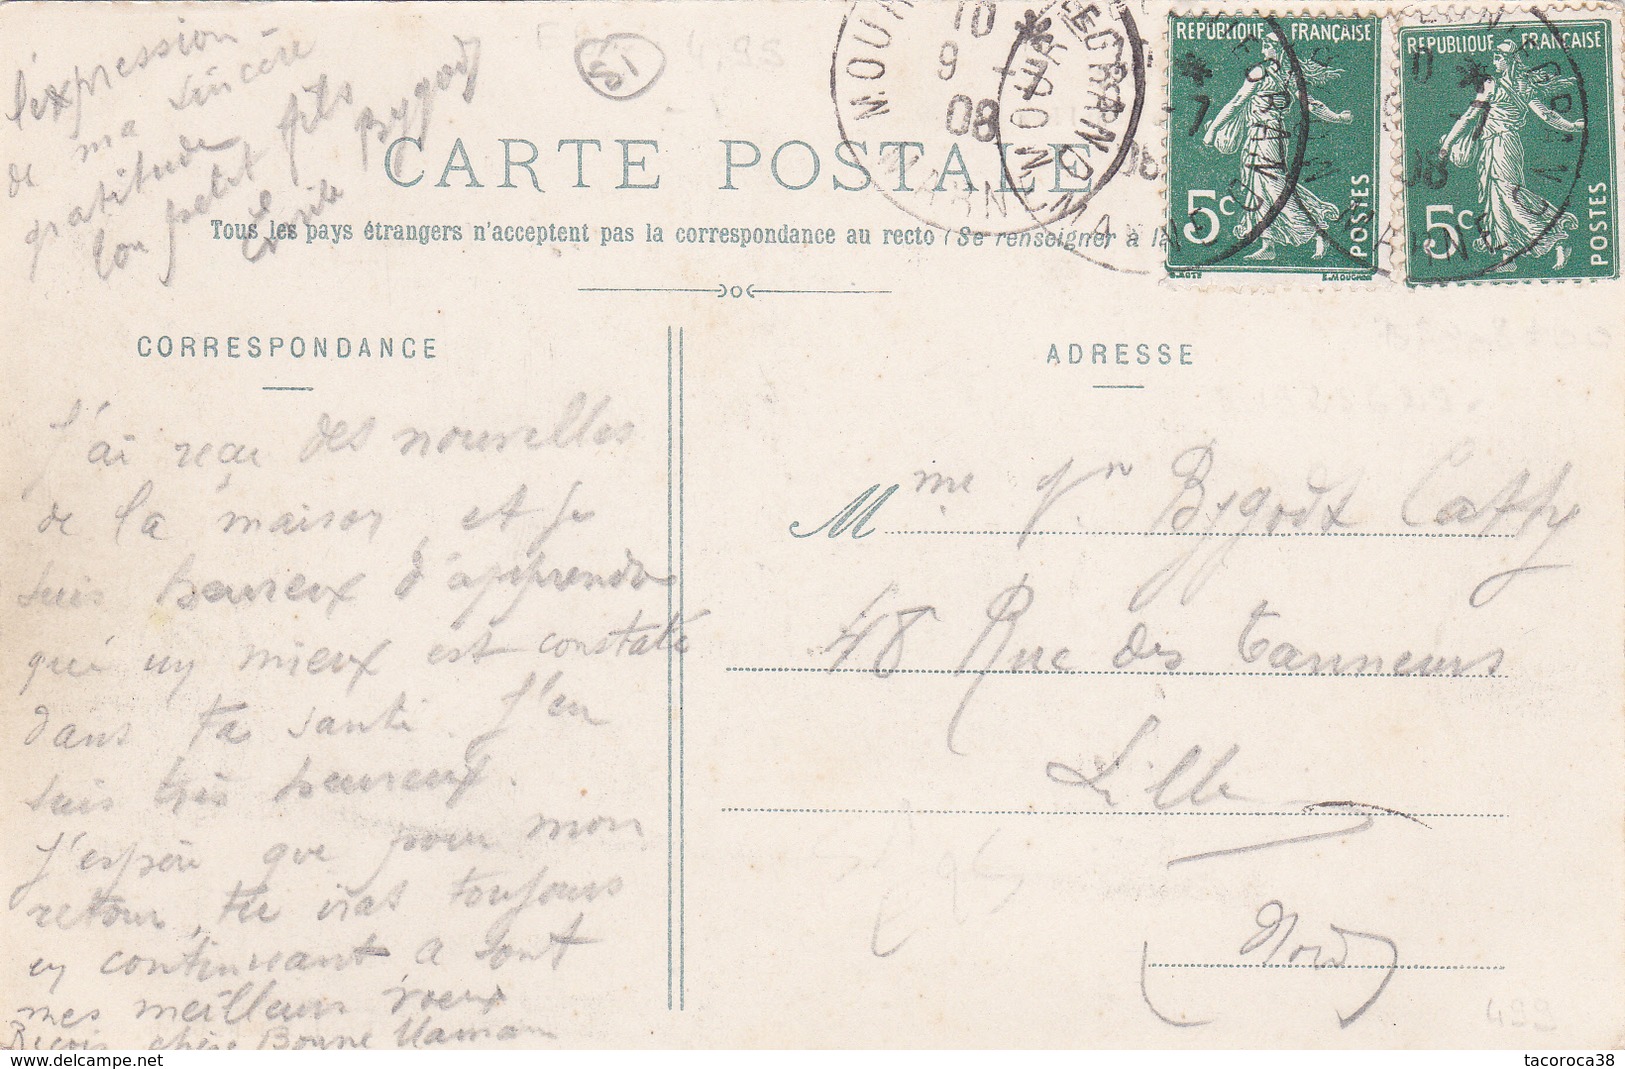 l'expression
de ma sincère
gratitude
ton petit fils
Emile Bygodt
51
CARTE POSTALE
Tous les pays étrangers n'acceptent pas la correspondance au recto (Se renseigner à la
RÉPUBLIQUE FRANÇAISE
5c
POSTES
RÉPUBLIQUE FRANÇAISE
5c
POSTES
10
9 -7
08
MARNE
CORRESPONDANCE
J'ai reçu des nouvelles
de la maison, et je
suis heureux d'apprendre
qui un mieux est constaté
dans ta santé. J'en
suis très heureux.
J'espère que pour mon
retour, tu iras toujours
en continuant a sont
mes meilleurs voeux
Reçois chère Bonne Maman
ADRESSE
Mme Bygodt Catty
48 Rue des Tanneurs
Lille
(Nord)
499
delcampe.net
tacoroca38